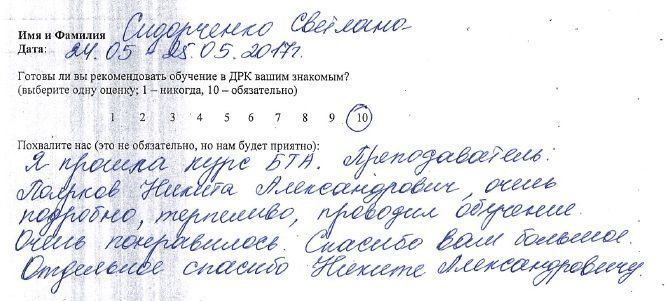 Имя и Фамилия Сидорченко Светлана
Дата: 24.05 - 25.05.2017г.
Готовы ли вы рекомендовать обучение в ДРК вашим знакомым?
(выберите одну оценку; 1 – никогда, 10 – обязательно)
1 2 3 4 5 6 7 8 9 10
Похвалите нас (это не обязательно, но нам будет приятно):
Я прошла курс БТА. Преподаватель:
Поярков Никита Александрович, очень
подробно, терпеливо, проводил обучение.
Очень понравилось. Спасибо вам большое.
Отдельное спасибо Никите Александровичу.